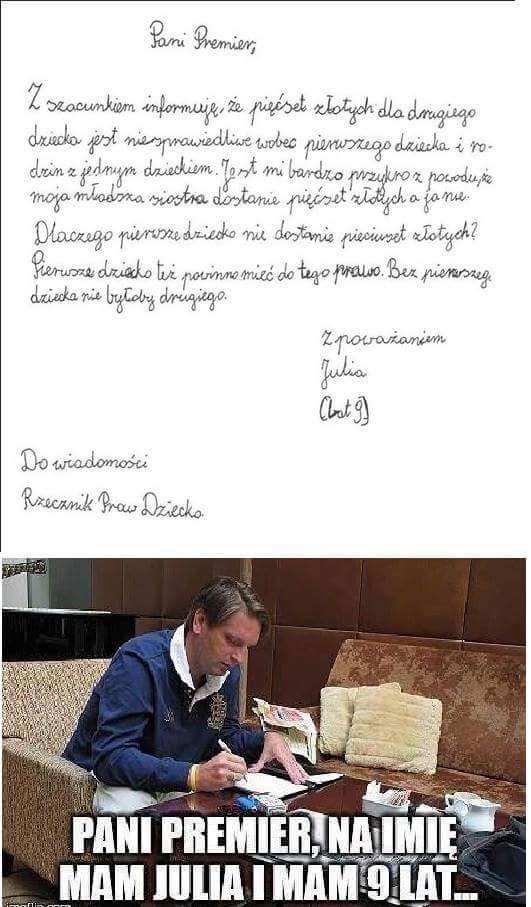 Pani Premier,
Z szacunkiem informuję, że pięćset złotych dla drugiego
dziecka jest niesprawiedliwe wobec pierwszego dziecka i ro-
dzin z jednym dzieckiem. Jest mi bardzo przykro z powodu, że
moja młodsza siostra dostanie pięćset złotych a ja nie.
Dlaczego pierwsze dziecko nie dostanie pięciuset złotych?
Pierwsze dziecko też powinno mieć do tego prawo. Bez pierwszeg
dziecka nie byłoby drugiego.
Z poważaniem
Julia
(lat 9)
Do wiadomości
Rzecznik Praw Dziecka
PANI PREMIER, NA IMIĘ
MAM JULIA I MAM 9 LAT...
imgflip.com